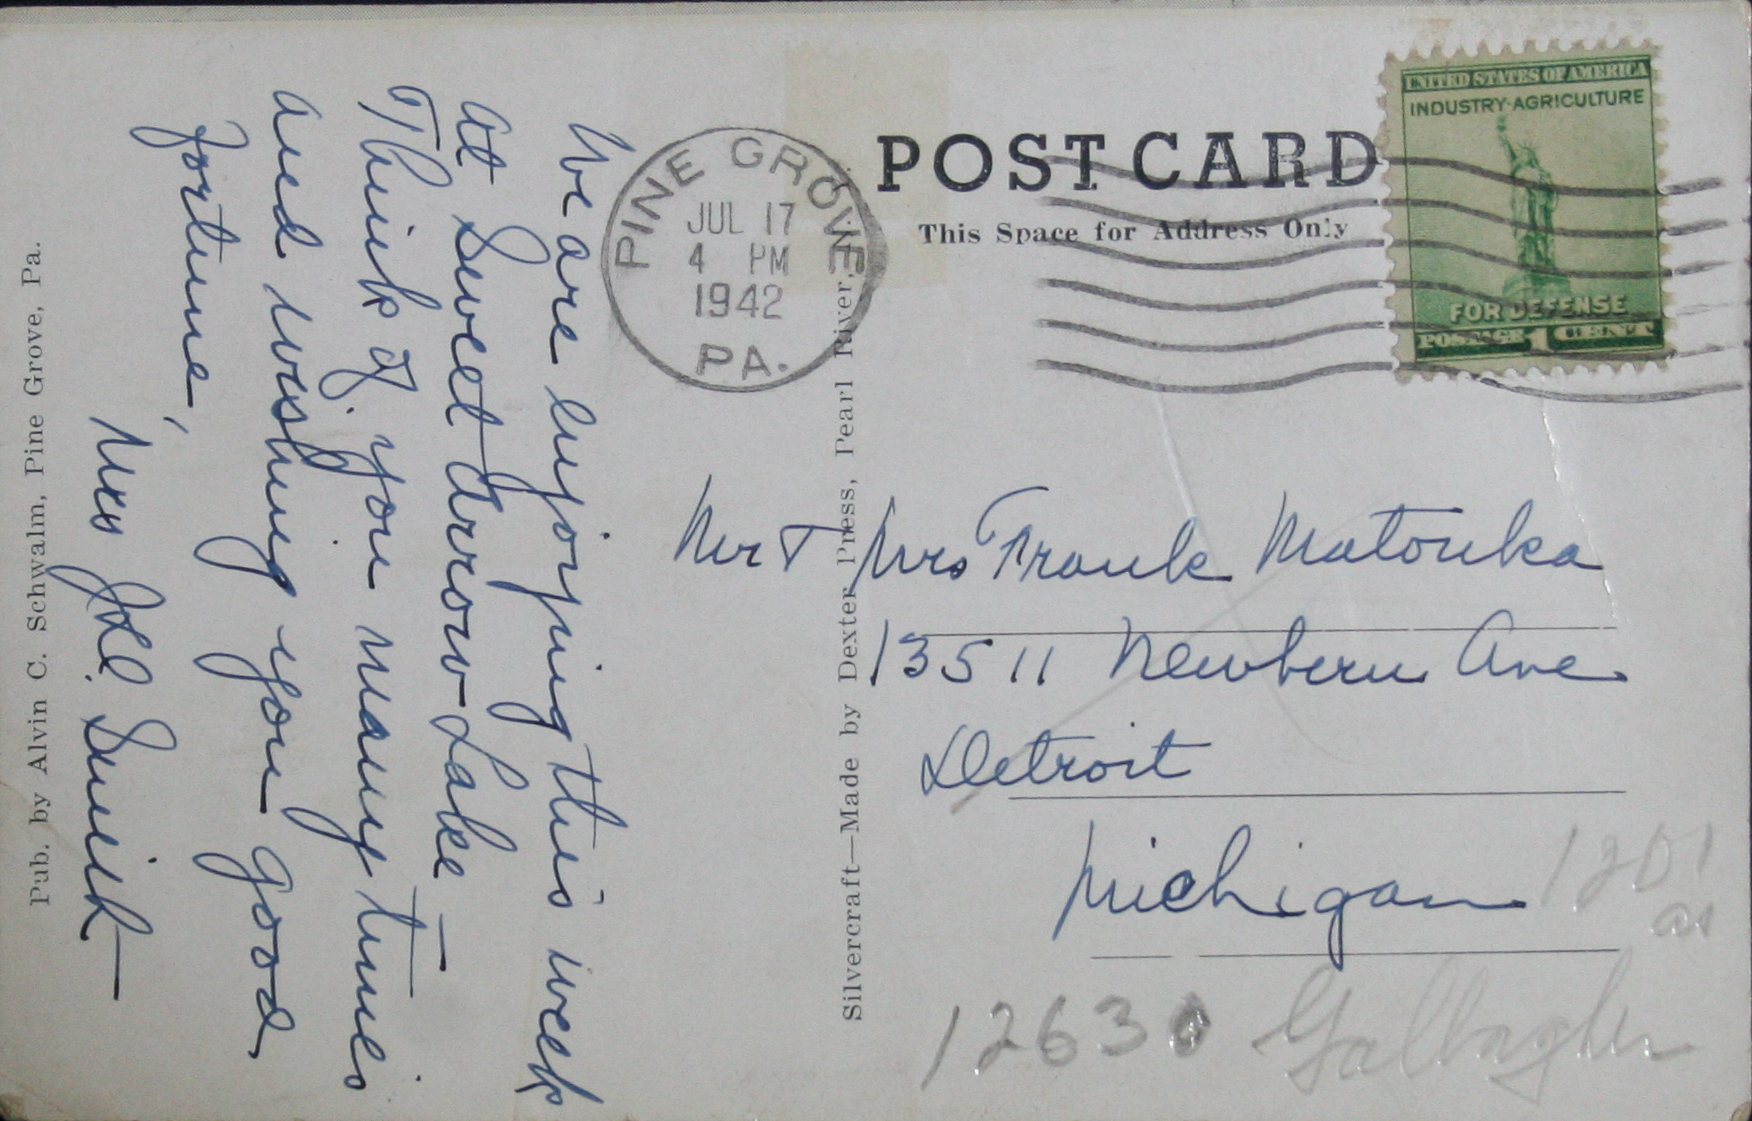 We are enjoying this week
at Sweet Arrow Lake —
Think of you many times
and wishing you good
fortune,
Mrs J.H. Smith
Pub. by Alvin C. Schwalm, Pine Grove, Pa.
PINE GROVE
JUL 17
4 PM
1942
PA.
Silvercraft—Made by Dexter Press, Pearl River,
POST CARD
This Space for Address Only
UNITED STATES OF AMERICA
INDUSTRY·AGRICULTURE
FOR DEFENSE
POSTAGE 1 CENT
Mr & Mrs Frank Matouka
13511 Newbern Ave
Detroit
Michigan
1201
12630 Gallagher